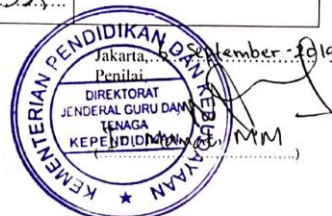 Jakarta, September 2019
Penilai,
KEMENTERIAN PENDIDIKAN DAN KEBUDAYAAN
DIREKTORAT
JENDERAL GURU DAN
TENAGA
KEPENDIDIKAN
MM